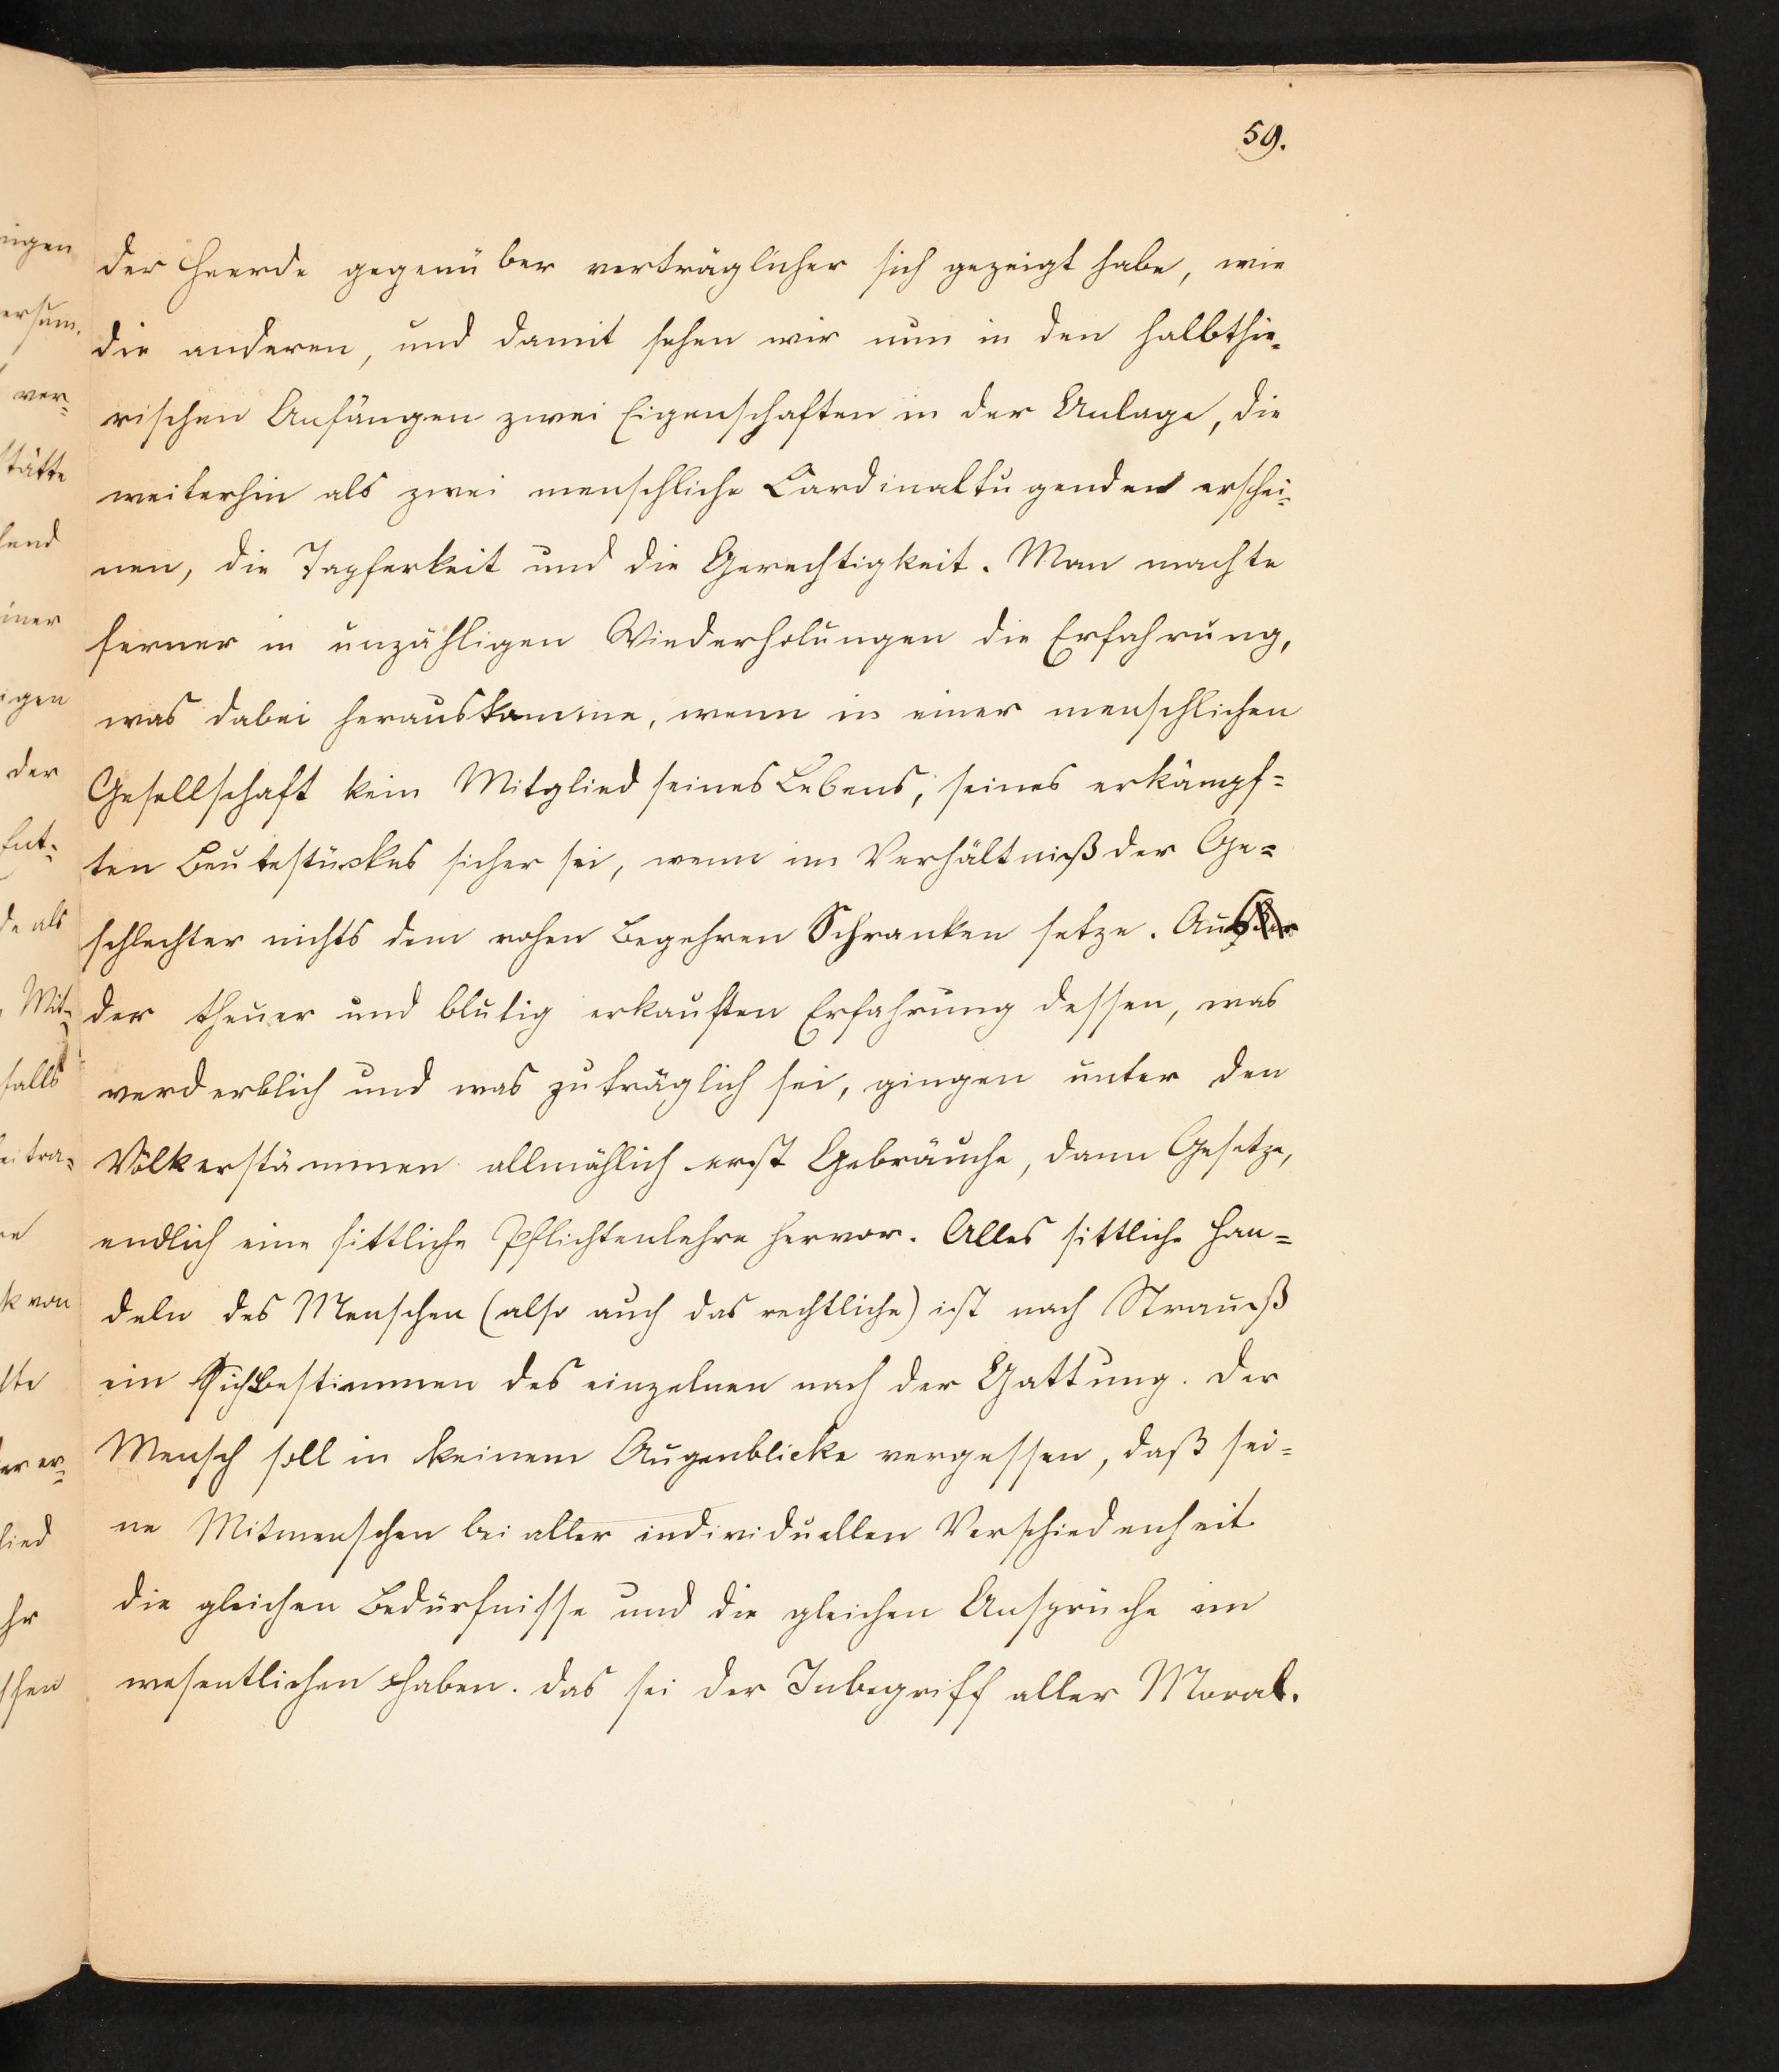 59.
der Heerde gegenüber verträglicher sich gezeigt habe, wie
die anderen, und damit sehen wir nun in den halbthie-
rischen Anfängen zwei Eigenschaften in der Anlage, die
weiterhin als zwei menschliche Cardinaltugenden erschei-
nen, die Tapferkeit und die Gerechtigkeit. Man machte
ferner in unzähligen Wiederholungen die Erfahrung,
was dabei herauskomme, wenn in einer menschlichen
Gesellschaft kein Mitglied seines Lebens, seines erkämpf=
ten Beutestückes sicher sei, wenn im Verhältniß der Ge=
schlechter nichts dem rohen Begehren Schranken setze. Aus
der theuer und blutig erkauften Erfahrung dessen, was
verderblich und was zuträglich sei, gingen unter den
Völkerstämmen allmählich erst Gebräuche, dann Gesetze,
endlich eine sittliche Pflichtenlehre hervor. Alles sittliche Han=
deln des Menschen (also auch das rechtliche) ist nach Strauß
ein Sichbestimmen des einzelnen nach der Gattung. Der
Mensch soll in keinem Augenblicke vergessen, daß sei=
ne Mitmenschen bei aller individuellen Verschiedenheit
die gleichen Bedürfnisse und die gleichen Ansprüche im
wesentlichen haben. Das sei der Inbegriff aller Moral.